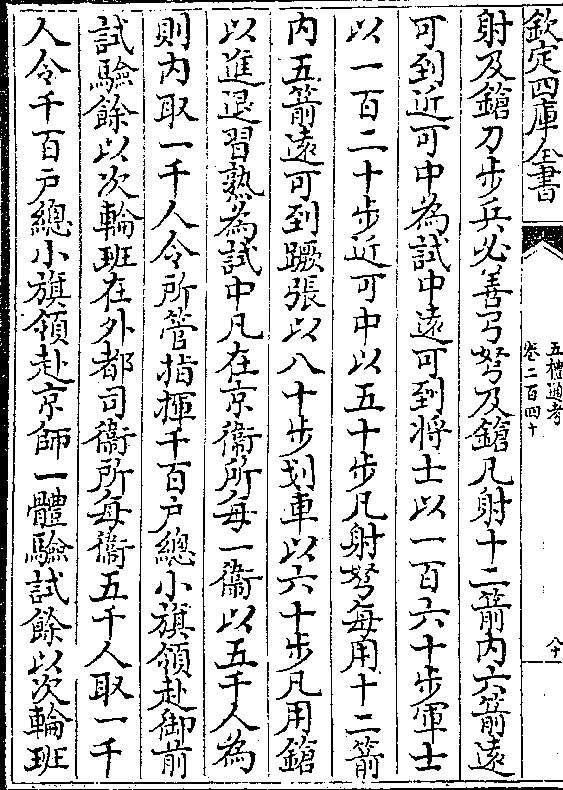 欽定四庫全書
五禮通考
卷二百四十
八十
射及鎗刀步兵必善弓弩及鎗凡射十二箭内六箭遠
可到近可中為試中遠可到將士以一百六十步軍士
以一百二十步近可中以五十步凡射弩每用十二箭
内五箭遠可到蹶張以八十步划車以六十步凡用鎗
以進退習熟為試中凡在京衞所每一衞以五千人為
則内取一千人令所管指揮千百戸總小旗領赴御前
試驗餘以次輪班在外都司衞所每衞五千人取一千
人令千百戸總小旗領赴京師一體驗試餘以次輪班